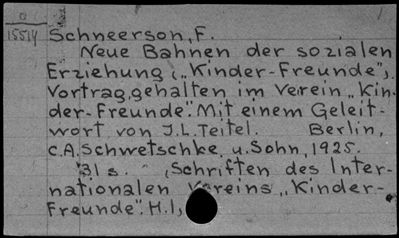 0
15514
Schneerson, F.
Neue Bahnen der sozialen
Erziehung („Kinder-Freunde”).
Vortrag, gehalten im Verein „Kin-
der-Freunde”. Mit einem Geleit-
wort von J.L. Teitel. Berlin,
C.A. Schwetschke u. Sohn, 1925.
31 s. „Schriften des Inter-
nationalen Vereins „Kinder-
Freunde”. H.1,